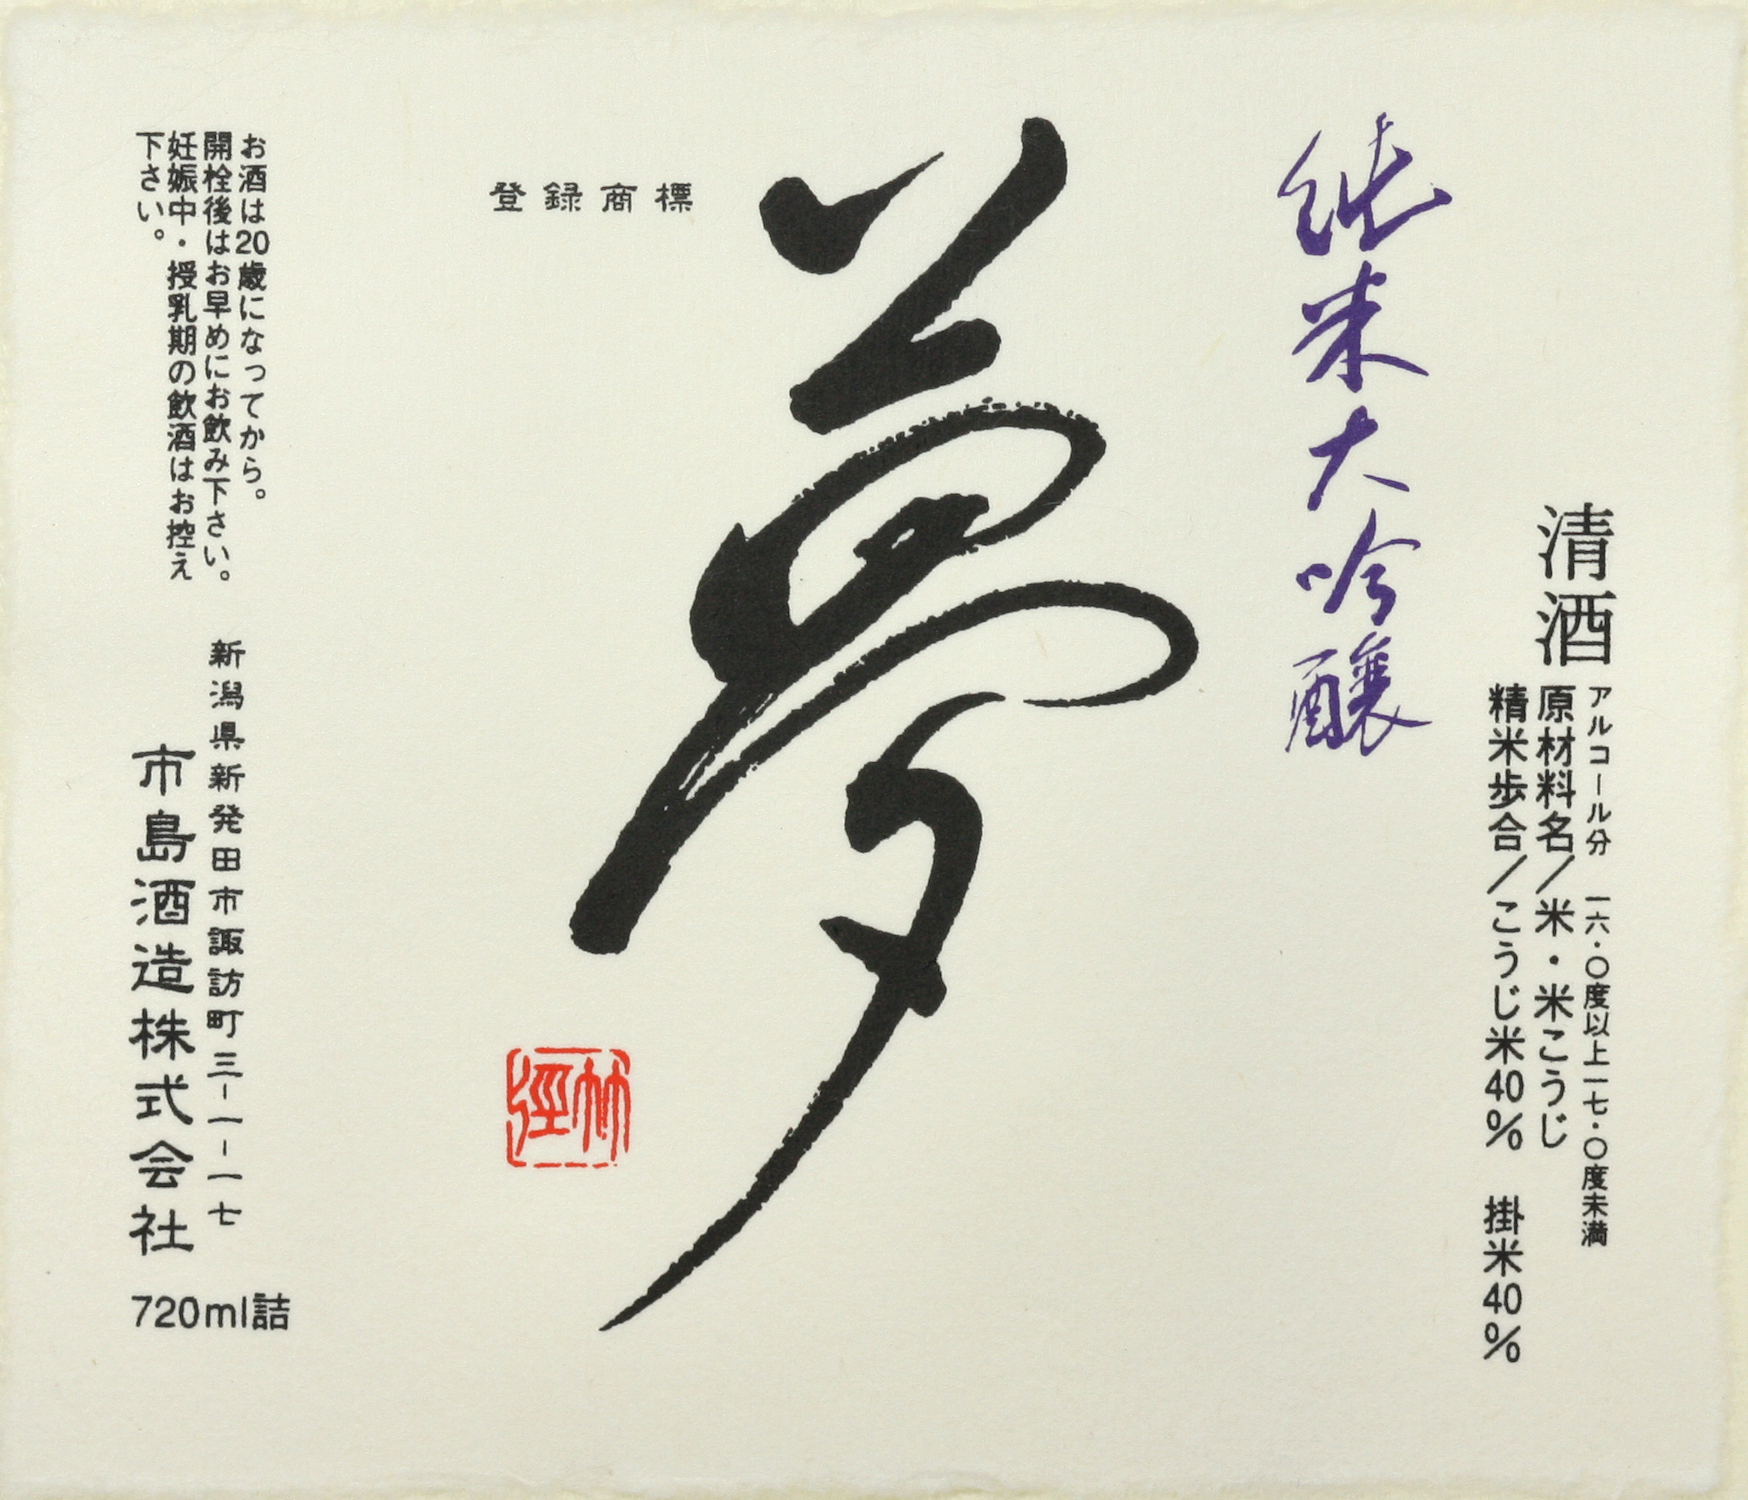 清酒
アルコール分 一六・〇度以上一七・〇度未満
原材料名/米・米こうじ
精米歩合/こうじ米40% 掛米40%
純米大吟醸
夢
登録商標
竹径
お酒は20歳になってから。
開栓後はお早めにお飲み下さい。
妊娠中・授乳期の飲酒はお控え
下さい。
新潟県新発田市諏訪町三-一-一七
市島酒造株式会社
720ml詰